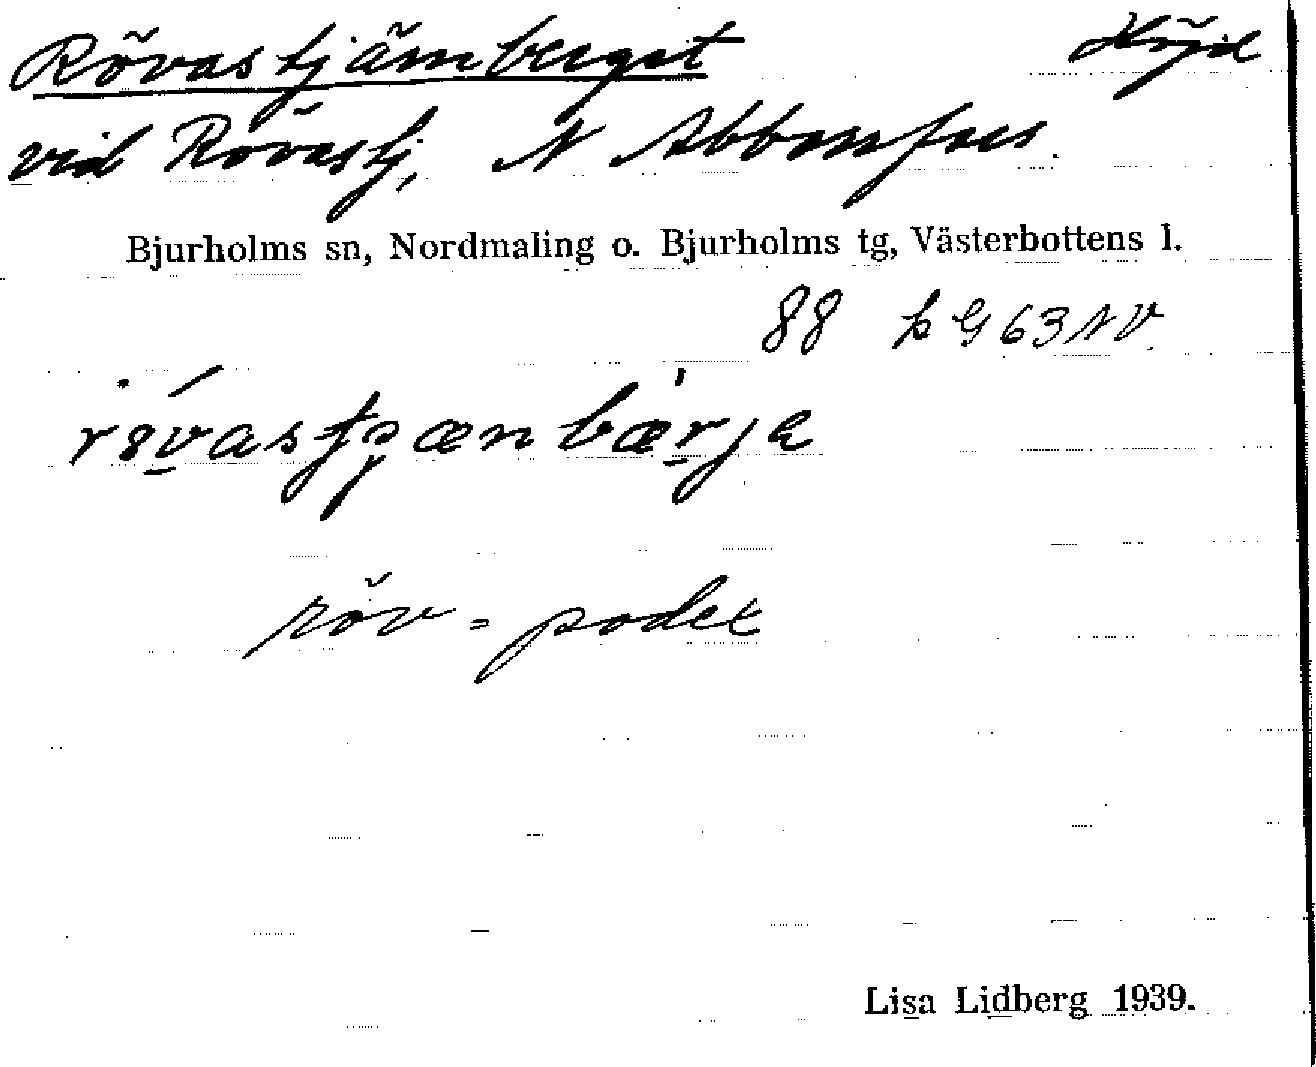 Rövastjärnberget Höjd
vid Rövastj, N Abborrfors.
Bjurholms sn, Nordmaling o. Bjurholms tg, Västerbottens l.
88 k G 63 NV.
röv = podex
Lisa Lidberg 1939.